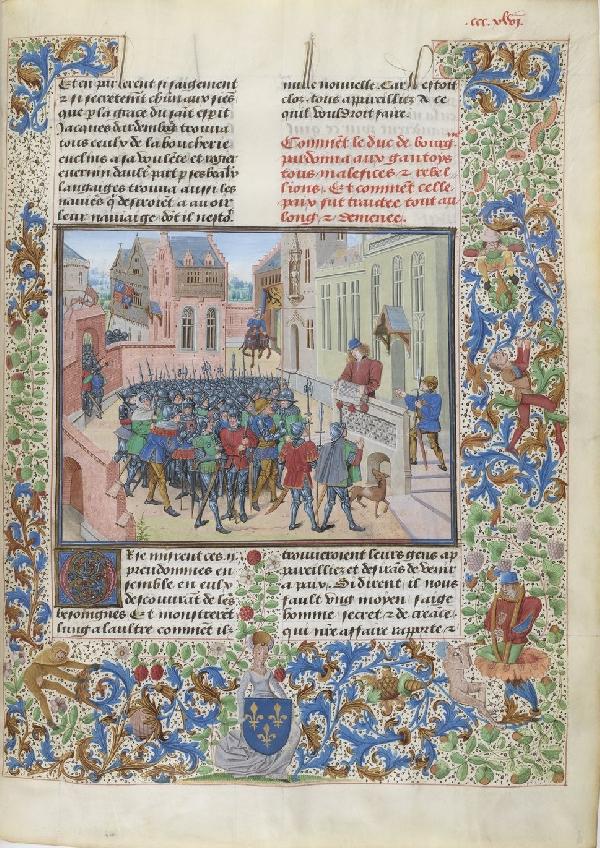 .ccc. xlvi.
Et en parlerent si saigement
& si secretemt chun aux sies
que p la grace du sait espit
Jacques
tous ceulx de la boucherie
enclins a sa voulete et roger
euermin daultre part p ses beaulx
langaiges trouua aussi les
nauieurs q desiroiet a auoir
leur nauiaige dot il nesto'
nulle nouuelle. Car il estoit
clos. tous appareilliez de ce
quil vouldroit faire.
Commet le duc de bourg
pardonna aux gantoys
tous malefices & rebel
lions. Et commet celle
paix fut traictee tout au
long & demenee.
Or se misrent ces .ij.
preudommes en
semble en eulx
descouurant de les
besoingnes Et monstreret
lung a laultre commet ilz
trouueroient leurs gens ap
pareilliez et desirans de venir
a paix. Si dirent il nous
fault vng moyen saige
homme secret & de creace
qui nre affaire rapporte &